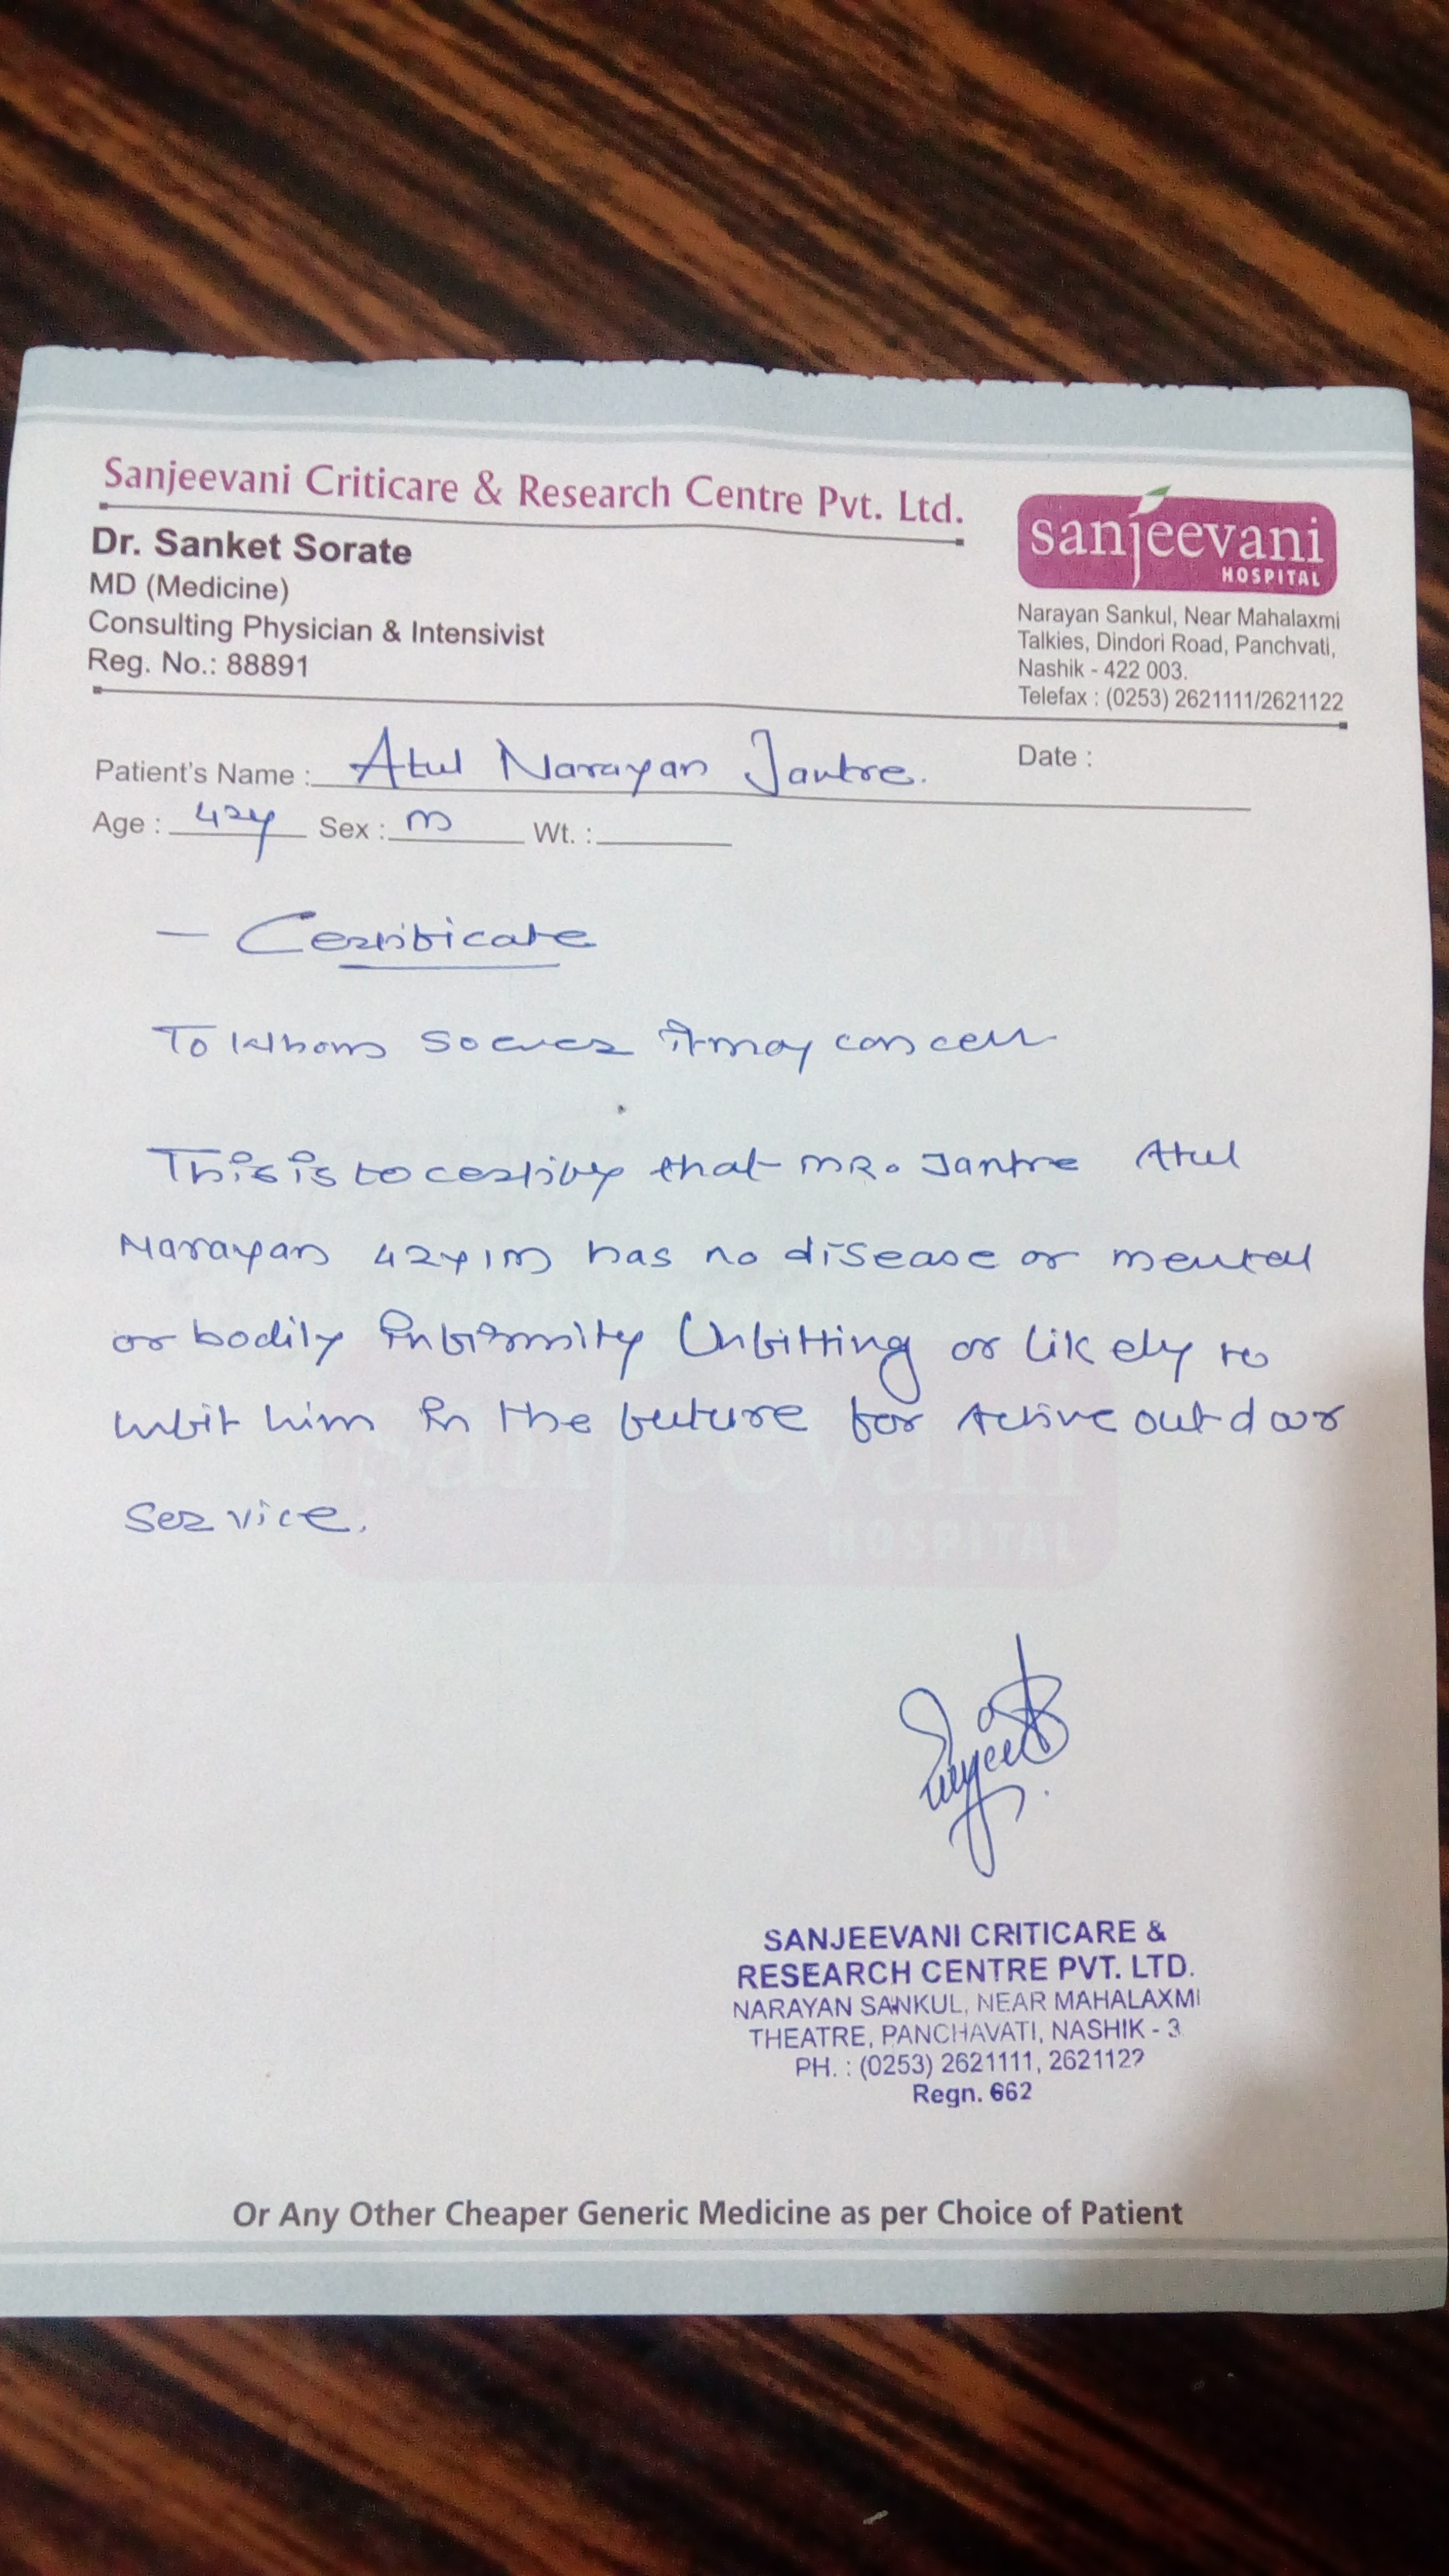 Sanjeevani Criticare & Research Centre Pvt. Ltd.
Dr. Sanket Sorate
MD (Medicine)
Consulting Physician & Intensivist
Reg. No.: 88891
sanjeevani
HOSPITAL
Narayan Sankul, Near Mahalaxmi
Talkies, Dindori Road, Panchvati,
Nashik - 422 003.
Telefax : (0253) 2621111/2621122
Patient's Name : Atul Narayan Jantre.
Date :
Age : 42y Sex : m Wt. :
- Certificate
To Whom soever it may concern
This is to certify that MR. Jantre Atul
Narayan 42y/m has no disease or mental
or bodily infirmity Unfitting or likely to
unfit him in the future for Active outdoor
service.
sanjeevani
HOSPITAL
SANJEEVANI CRITICARE &
RESEARCH CENTRE PVT. LTD.
NARAYAN SANKUL, NEAR MAHALAXMI
THEATRE, PANCHAVATI, NASHIK - 3
PH. : (0253) 2621111, 2621122
Regn. 662
Or Any Other Cheaper Generic Medicine as per Choice of Patient